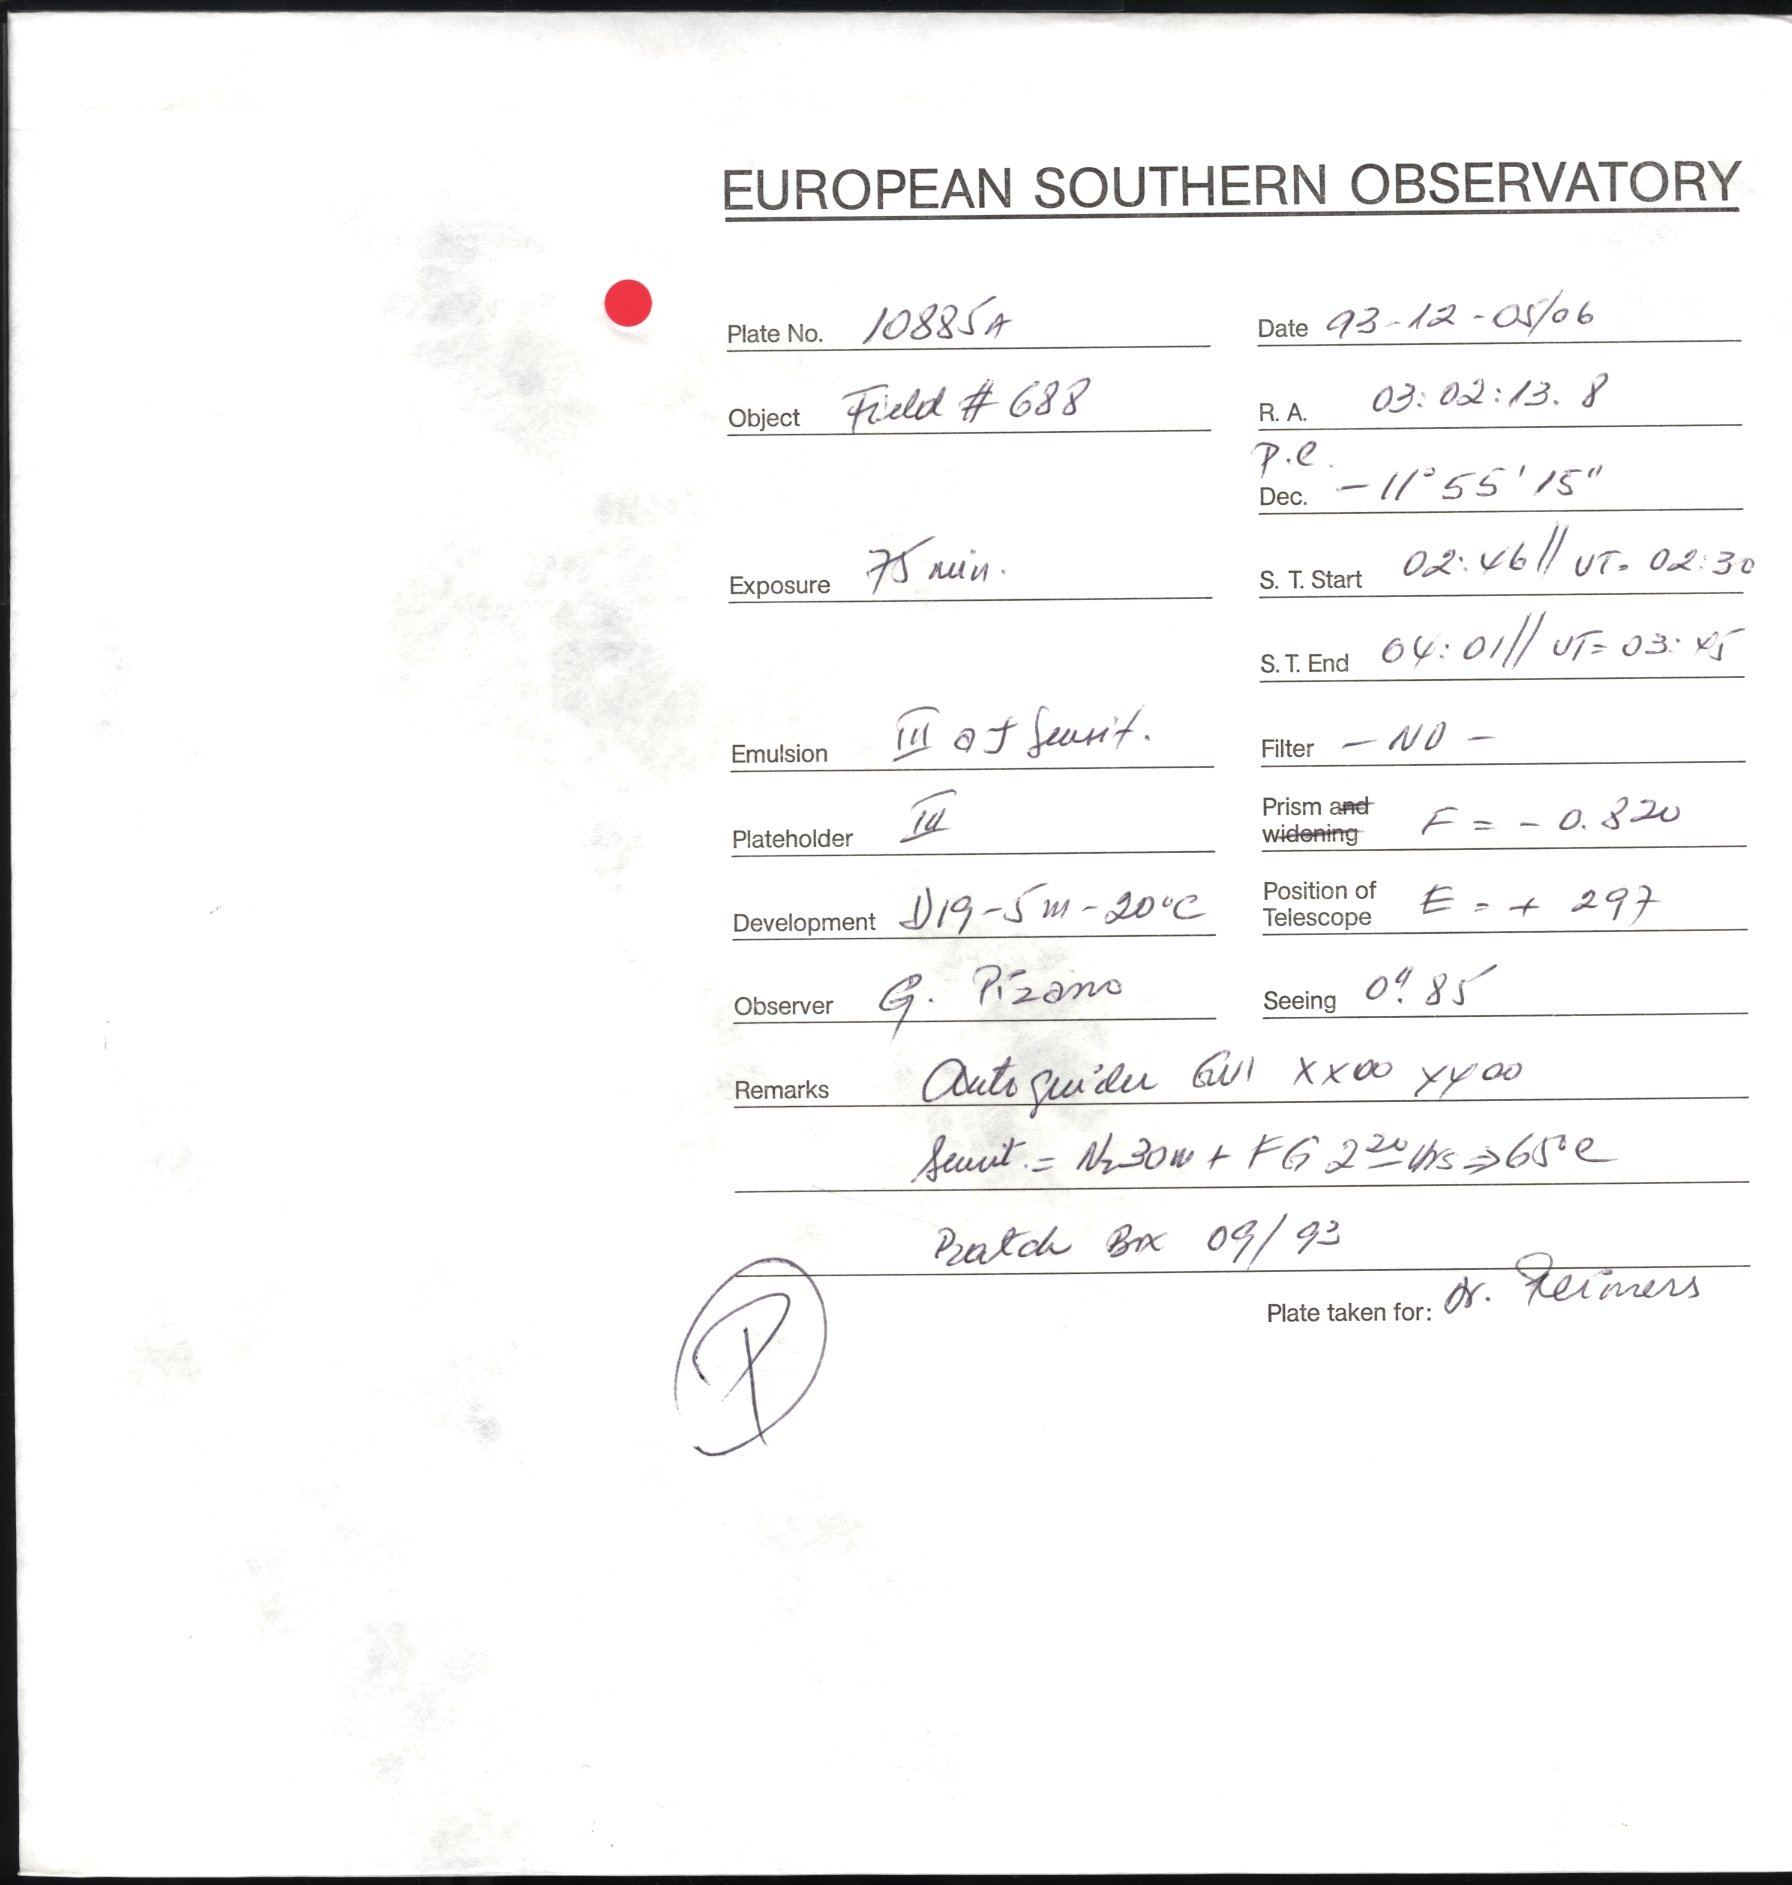 EUROPEAN SOUTHERN OBSERVATORY
Plate No. 10885A Date 93-12-05/06
Object Field # 688 R. A. 03:02:13.8
P.C.
Dec. -11°55'15"
Exposure 75 min. S. T. Start 02:46// UT= 02:30
S. T. End 04:01// UT= 03:45
Emulsion III a J Sensit. Filter - NO -
Plateholder III Prism and widening F = - 0.820
Development D19-5m-20°C Position of Telescope E = + 297
Observer G. Pizarro Seeing 0".85
Remarks Autoguider GUI XX00 YY00
Sensit. = N2 30m + FG 2 20 Hrs => 65°C
Batch Box 09/93
Plate taken for: Dr. Reimers
P